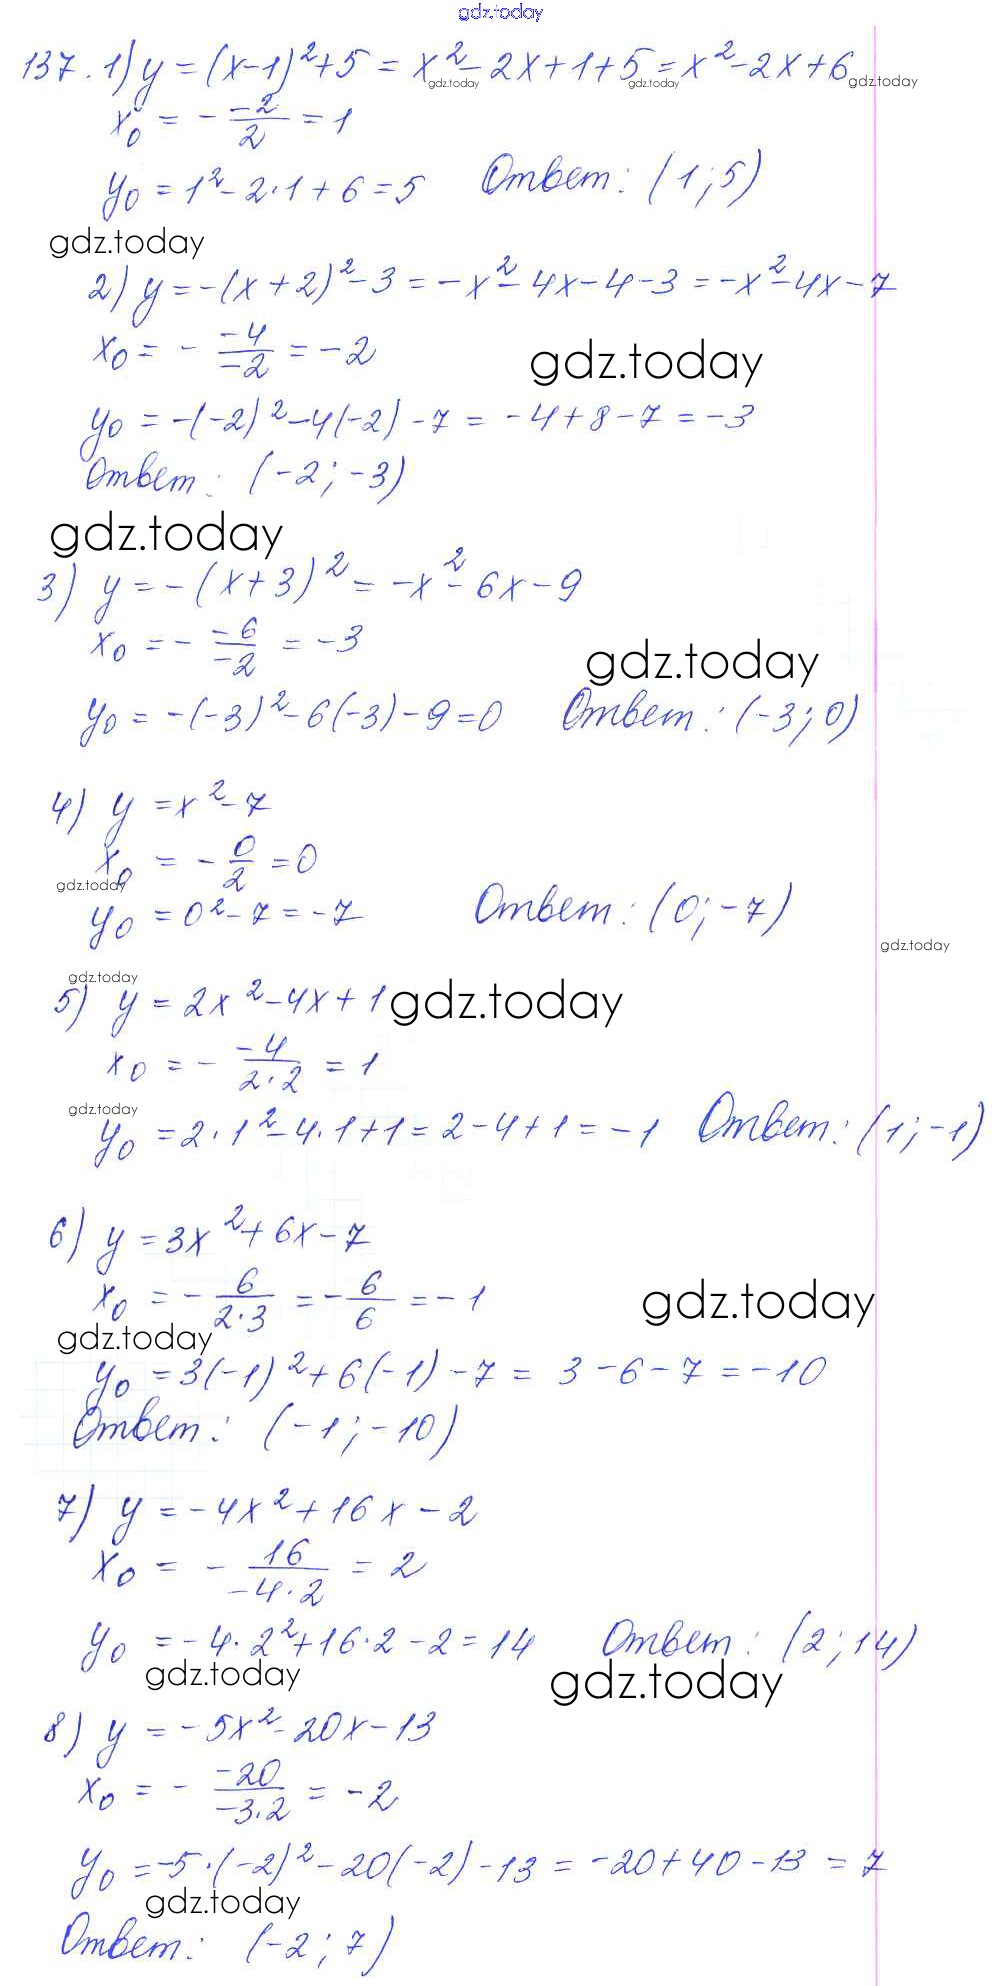 gdz.today
137. 1) y = (x-1)²+5 = x²-2x+1+5 = x²-2x+6
gdz.today gdz.today gdz.today
x₀ = - -2/2 = 1
y₀ = 1²-2·1+6 = 5 Ответ: (1;5)
gdz.today
2) y = -(x+2)²-3 = -x²-4x-4-3 = -x²-4x-7
x₀ = - -4/-2 = -2
gdz.today
y₀ = -(-2)²-4(-2)-7 = -4+8-7 = -3
Ответ: (-2;-3)
gdz.today
3) y = -(x+3)² = -x²-6x-9
x₀ = - -6/-2 = -3
gdz.today
y₀ = -(-3)²-6(-3)-9=0 Ответ: (-3;0)
4) y = x²-7
x₀ = - 0/2 = 0
gdz.today
y₀ = 0²-7 = -7 Ответ: (0;-7)
gdz.today
gdz.today
5) y = 2x²-4x+1 gdz.today
x₀ = - -4/2·2 = 1
gdz.today
y₀ = 2·1²-4·1+1 = 2-4+1 = -1 Ответ: (1;-1)
6) y = 3x²+6x-7
x₀ = - 6/2·3 = - 6/6 = -1
gdz.today
gdz.today
y₀ = 3(-1)²+6(-1)-7 = 3-6-7 = -10
Ответ: (-1;-10)
7) y = -4x²+16x-2
x₀ = - 16/-4·2 = 2
y₀ = -4·2²+16·2-2 = 14 Ответ: (2;14)
gdz.today gdz.today
8) y = -5x²-20x-13
x₀ = - -20/-3·2 = -2
y₀ = -5·(-2)²-20(-2)-13 = -20+40-13 = 7
gdz.today
Ответ: (-2;7)